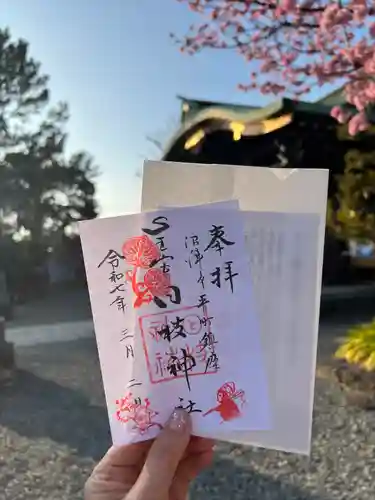 奉拝
沼津平町鎮座
日枝神社
令和七年
三月
二